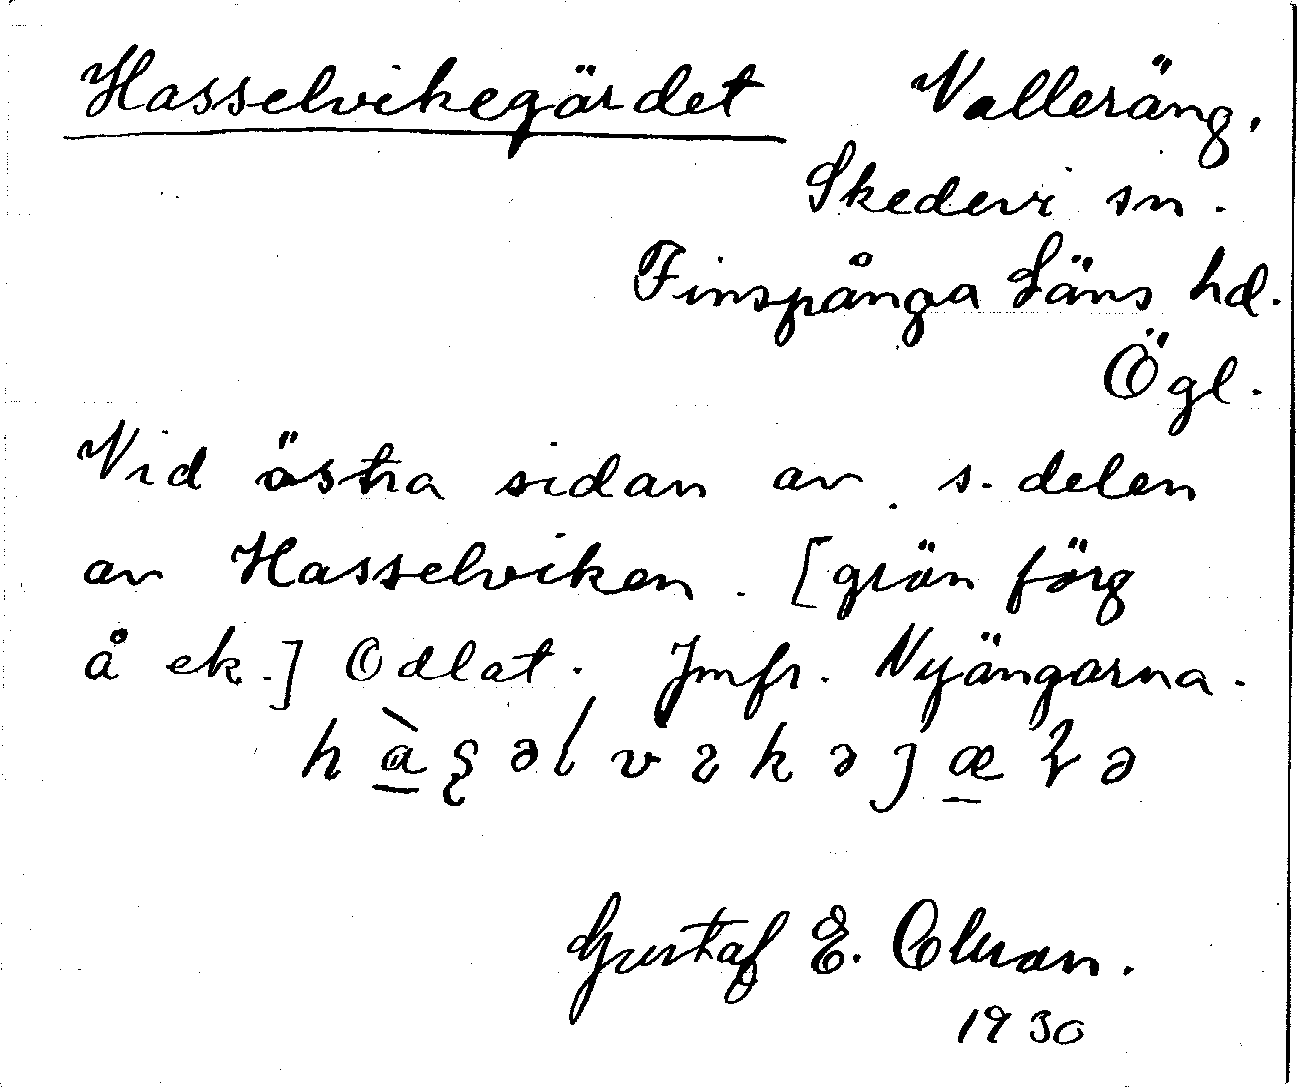 Hasselvikegärdet Valleräng.
Skedevi sn.
Finspånga Läns hd.
Ögl.
Vid östra sidan av s. delen
av Hasselviken. [grön färg
å ek.] Odlat. Jmfr. Nyängarna.
Gustaf E.
1930